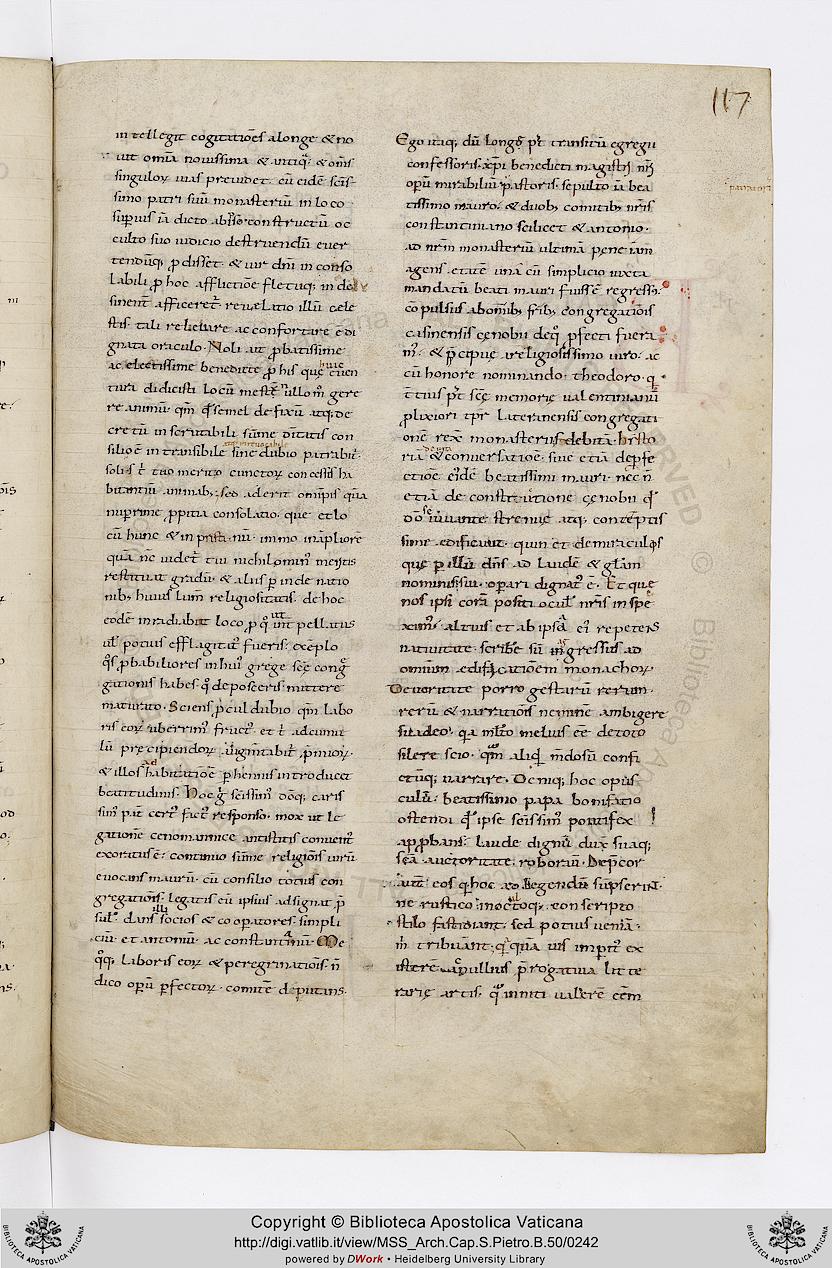 117
intellegit cogitatiões alonge & no
uit omia nouissima & antiq; & om̄s
singuloꝝ uias preuidet. cū eidē scīs-
simo patri suū monasteriū in loco
superius iā dicto constructū oc
culto suo iudicio destruendū euer
tendūq; ꝓdisset. & uir dni in conso
labili ꝓ hoc afflictiōe fletuq; in de
sinent̄ afficeret̄. reuelatio illū cele
stis tali releuare ac confortare e di
gnata oraculo. Noli aut ꝓbatissime
ac electissime benedicte ꝓ his quę euen
tura didicisti locū mestū ullom̄ gere
re animū. qm̄ qđ semel defixū atq; de
cretū inscrutabili sūme diuitatis con
silio ē intransibile sine dubio patrabit̄.
soli s; t̄ tuo merito cunctoꝝ concessis ha
bitantiū animab; sed aderit om̄ipis
nuprime ꝓpitia consolatio. que et lo
cū hunc & in pristinū. immo in ampliorē
quā nc̄ uidet̄ tui nichilomin; meritis
restituat gradū. & aliis per inde natio
nib; huius lum̄ religiositatis. de hoc
eodē inradiabit loco, ꝓ quo
ul potius efflagitat; fueris: exēplo
qđs ꝓbabiliores in hui; grege scę congr̄
gationis habes. qđ deposceris mittere
maturato. Sciens ꝓcul dubio qm̄ labo
ris eoꝝ uberrim; fruct;. et t̄ ad cumu
lū precipiendoꝝ
& illos habitatiōe ꝑhennis introducet
beatitudinis. Hoc gͥ scīssim; dōq; caris
sim; pat̄ cert; fact; responso. mox ut le
gatione cenomannice antistitis conuent;
exoratus ē: continuo sūme religiōis uirū
euocans maurū. cū consilio totius con
gregatiōis legatis eū ipsius adsignat p̄
sul. dans illi socios & cooperatores simpli
ciū. et antoniū. ac constantinianū. Me
qq; laboris eoꝝ & peregrinatiōis n̄
dico operū perfectoꝝ. comitē deputans.
Ego itaq; dū longe p̄t transitū egregii
confessoris xpi benedicti magistri nr̄i
operū mirabiliū patratoris. sepulto iā bea
tissimo mauro. & duob; comitib; nr̄is
constantiniano scilicet & antonio.
ad nr̄m monasteriū ultimā pene iam
agens etatē una cū simplicio iuxta
mandatū beati mauri fuissē regress;.
cōpulsus ab omib; frib; congregatiōis
casinensis cęnobii
& p̄cipue a religiosissimo uiro. ac
cū honore nominando theodoro. q
tertius p̄t scę memorię ualentinianū
ꝓlixiori tpr̄ lateranensis congregati
onē rexit monasterii debitā histo
riā de uita & conuersatiōe. siue etiā de perfe
ctiōe eidē beatissimi mauri. nec n̄
etiā de constitutione cęnobii qđ
dō se iuuante strenue atq; conteptis
sime edificauit. quin et de miraculis
que per illū dn̄s ad laudē & gl̄am
nominis sui operari dignat; ē. Et que
nos ipsi corā positi ocul nr̄is inspe
xim; altius et ab ipsa ei repetens
natiuitate. scribere sū aggressus ad
omnium edificatiōem monachoꝝ.
De ueritate porro gestarū rerum.
rerū & narratiōis neminē ambigere
sit adeo; q̄a mlto melius eē detoto
silere scio. qm̄ aliqđ m̄dosū confi
ctūq; narrare. Deniq; hoc opus
culū beatissimo papa bonifatio
ostendi qđ ipse scīssim; pontifex
approbans: laude dignū dux̄ suaq;
scā auctoritate roborauit. Deprecor
aut̄ eos qui hoc ad legendū sūpserint
ne rustico inoc̄toq; conscripto
stilo fastidiant. sed potius ueniā
m̄ tribuant. qui quā uis imperit; ex
isterē. ac nullius p̄rogatiua litte
rarię artis. inniti ualerē cēm
Copyright © Biblioteca Apostolica Vaticana
http://digi.vatlib.it/view/MSS_Arch.Cap.S.Pietro.B.50/0242
powered by DWork • Heidelberg University Library